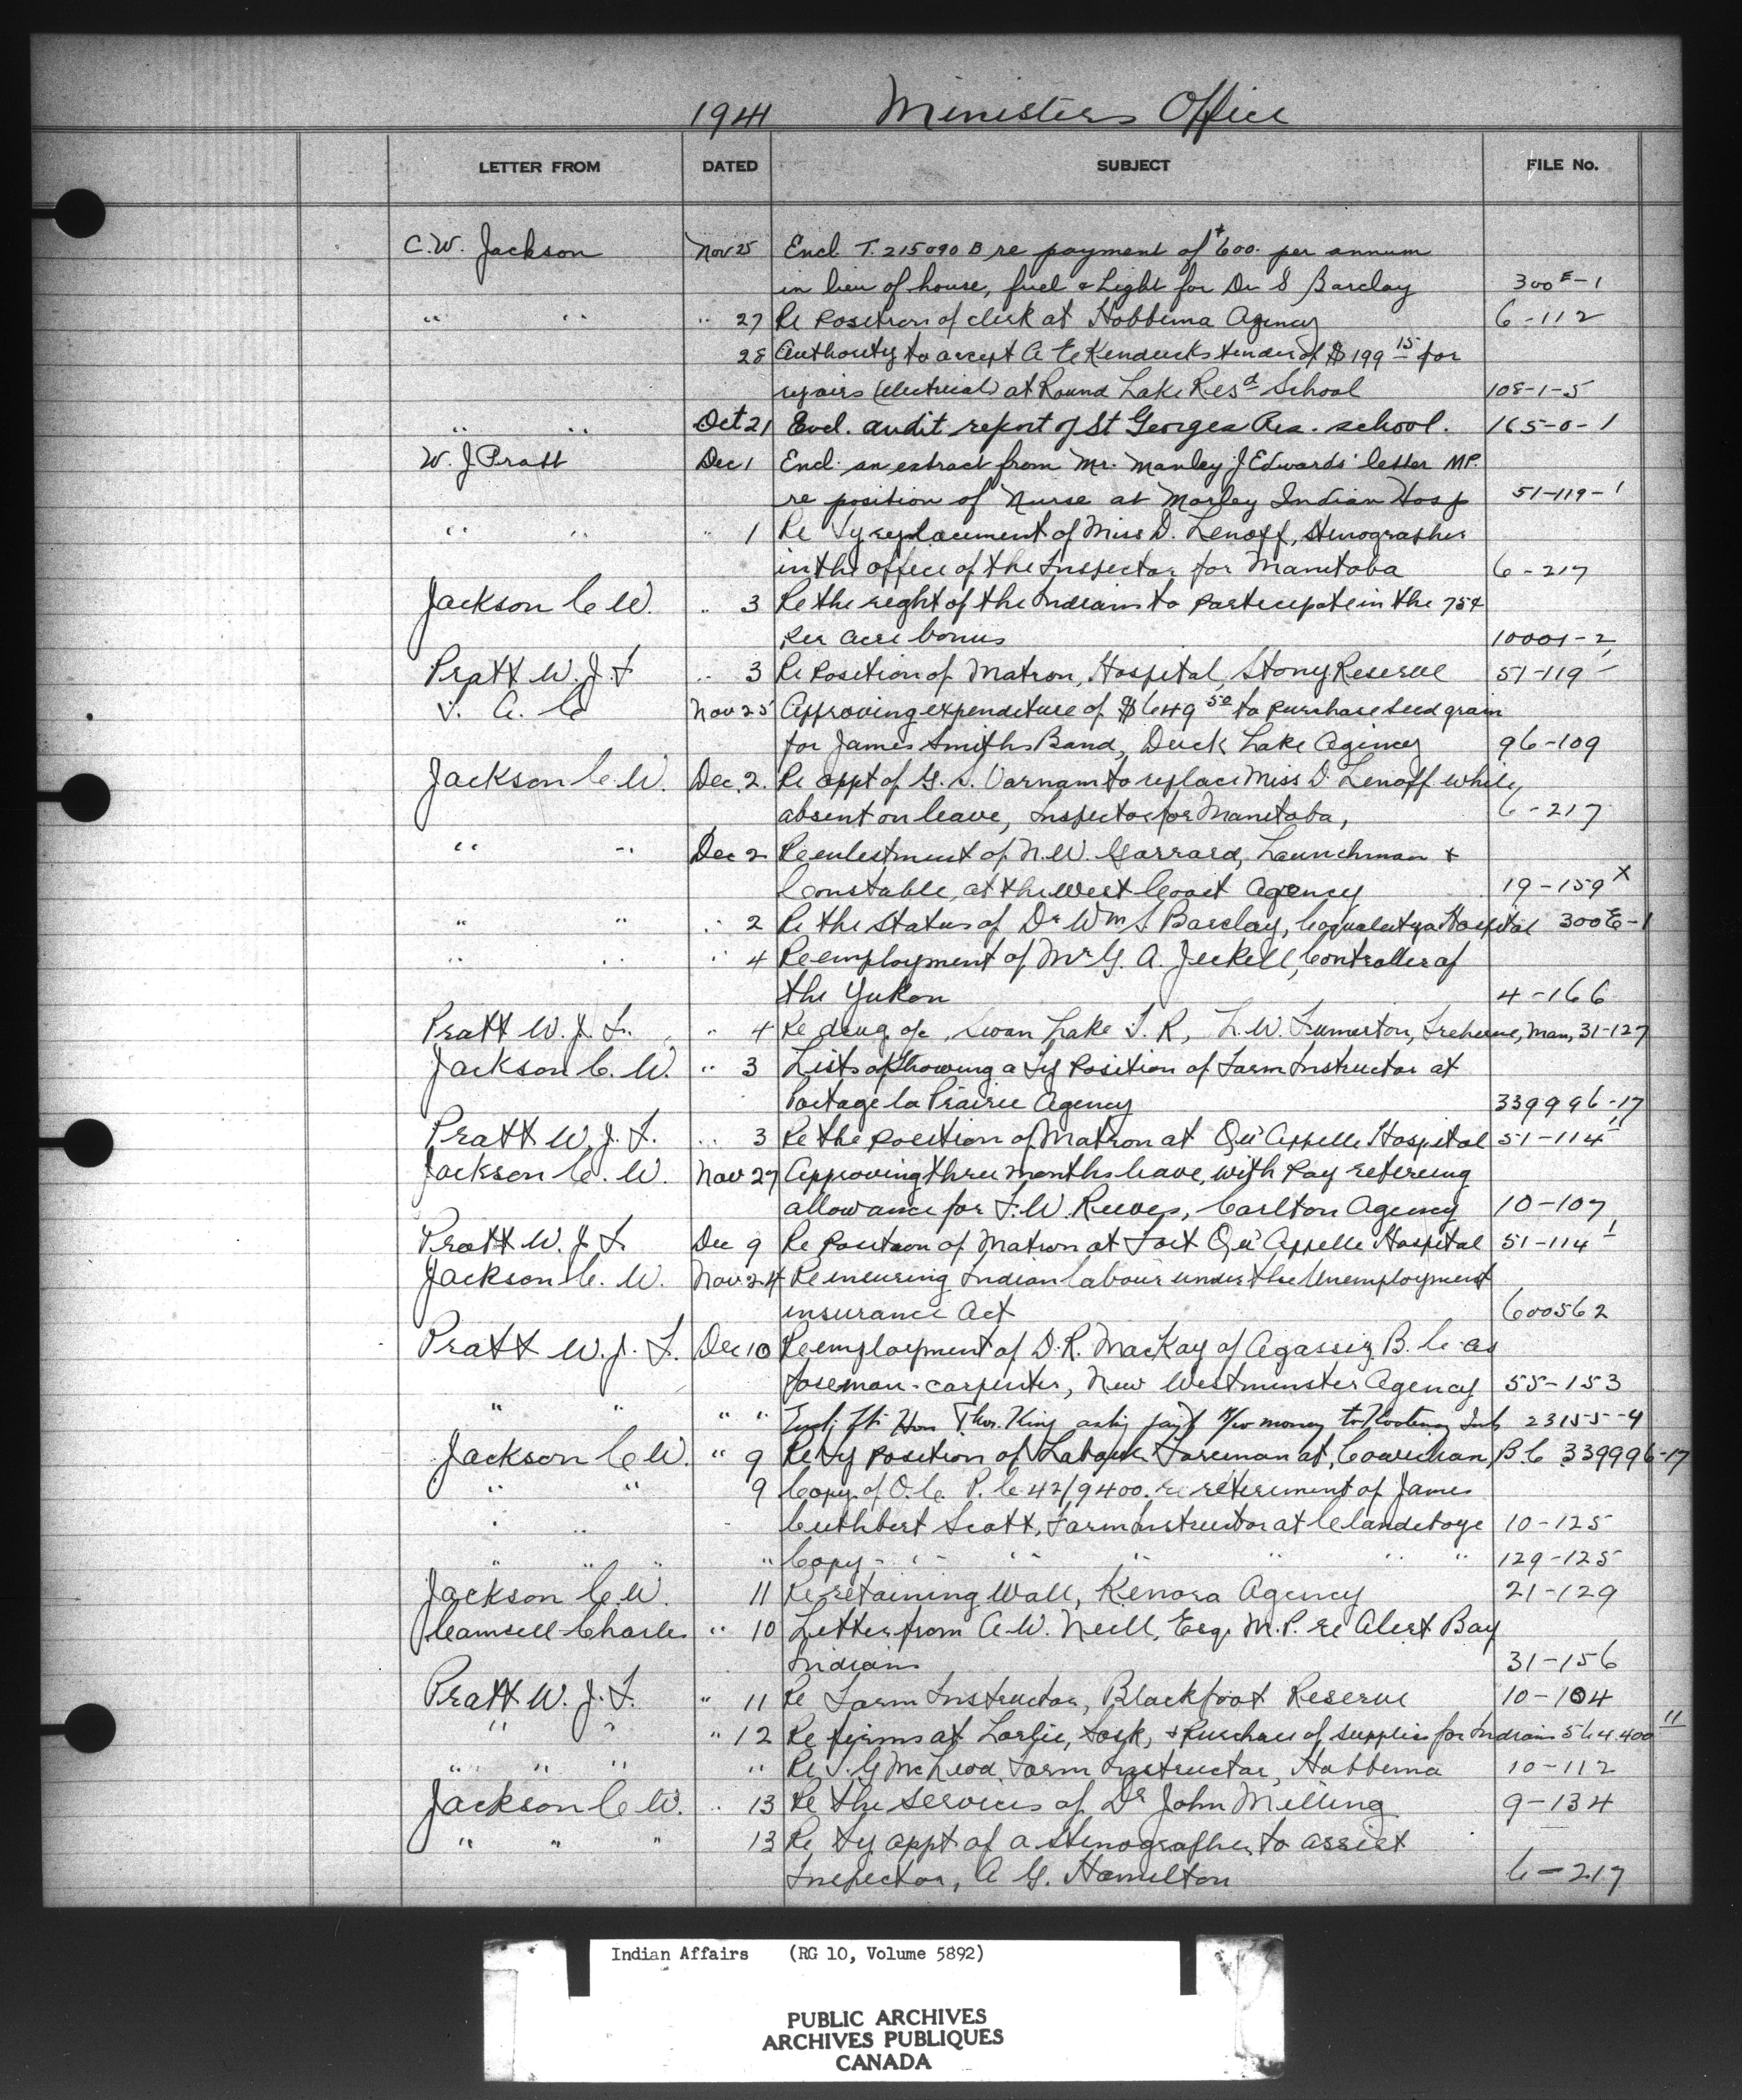 1941 Ministers Office
LETTER FROM DATED SUBJECT FILE No.
C.W. Jackson Nov 25 Encl T. 215090 B re payment of $600. per annum
in lieu of house, fuel & Light for Dr S Barclay 300 E-1
" " " 27 Re Position of clerk at Hobbema Agency 6-112
28 Authority to accept A E Kendricks tender of $199 15 for
repairs (electrical) at Round Lake Resd School 108-1-5
" " Oct 21 Encl. audit report of St Georges Res. school. 165-0-1
W. J Pratt Dec 1 Encl. an extract from Mr. Manley J Edwards' letter MP.
re position of Nurse at Morley Indian Hosp 51-119-1
" " " 1 Re Ty replacement of Miss D. Lenoff, Stenographer
in the office of the Inspector for Manitoba 6-217
Jackson C. W. " 3 Re the right of the Indians to participate in the 75¢
Per acre bonus 10001-2
Pratt W. J. F " 3 Re Position of Matron, Hospital, Stony Reserve 51-119-1
Nov 25 Approving expenditure of $649 50 to purchase seed grain
for James Smiths Band, Duck Lake Agency 96-109
Jackson C. W. Dec. 2. Re appt of G. S. Varnam to replace Miss D Lenoff while
absent on leave, Inspector for Manitoba, 6-217
" " Dec 2 Re enlistment of N. W. Garrard, Launchman &
Constable, at the West Coast Agency 19-159 X
" " " 2 Re the Status of Dr Wm S. Barclay, Coqualeetza Hospital 300 E-1
" " " 4 Re employment of Mr G. A. Jeckell, Controller of
the Yukon 4-166
Pratt W. J. F. " 4 Re drug a/c, Swan Lake I. R, L. W. Treherne, Man, 31-127
Jackson C. W. " 3 Lists of Showing a Ty Position of Farm Instructor at
Portage la Prairie Agency 339996-17
Pratt W. J. F. " 3 Re the position of Matron at Qu'Appelle Hospital 51-114-1
Jackson C. W. Nov 27 Approving three months leave, with Pay retireing
allowance for F. W. Reeves, Carlton Agency 10-107
Pratt W. J. F. Dec 9 Re Position of Matron at Fort Qu'Appelle Hospital 51-114-1
Jackson C. W. Nov 24 Re insuring Indian labour under the Unemployment
insurance Act 600562
Pratt W. J. F. Dec 10 Re employment of D. R. MacKay of Agassiz B. C. as
foreman-carpenter, New Westminster Agency 55-153
" " " " Encl; ltr Hon Thos. King asking payt money to Kootenay Inds 23155-4
Jackson C W. " 9 Re Ty Position of Labour Foreman at, Cowichan, B.C 339996-17
" " 9 Copy of O. C. P. C 42/9400. re retirement of James
" " " Cuthbert Scott, Farm Instructor at Clandeboye 10-125
" " " " Copy " " " " " " 129-125
Jackson C. W. 11 Re retaining Wall, Kenora Agency 21-129
Camsell Charles " 10 Letter from A. W. Neill, Esq. M. P. re Alert Bay
Indians 31-156
Pratt W. J. F. " 11 Re Farm Instructor, Blackfoot Reserve 10-104
" " " 12 Re firms at Lorlie, Sask, & Purchase of supplies for Indians 564.400 11
" " " " Re J. G McLeod Farm Instructor, Hobbema 10-112
Jackson C W. " 13 Re the services of Dr John Melling 9-134
" " " 13 Re Ty appt of a stenographer to assist
Inspector, A G. Hamilton 6-217
Indian Affairs (RG 10, Volume 5892)
PUBLIC ARCHIVES
ARCHIVES PUBLIQUES
CANADA